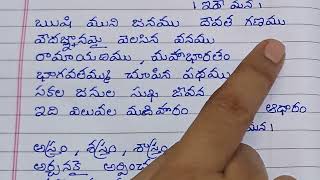 । ఇదే మన ।
ఋషి ముని జనము దేవత గణము
వేదజ్ఞానమై వెలసిన వనము
రామాయణము , మహాభారతం
భాగవతమ్ము చూపిన పథము
సకల జనుల సుఖ జీవన
ఇది విలువల మణిహారం ఆధారం
మన ।
అస్త్రం , శస్త్రం , శాస్త్రం
అర్జునకై